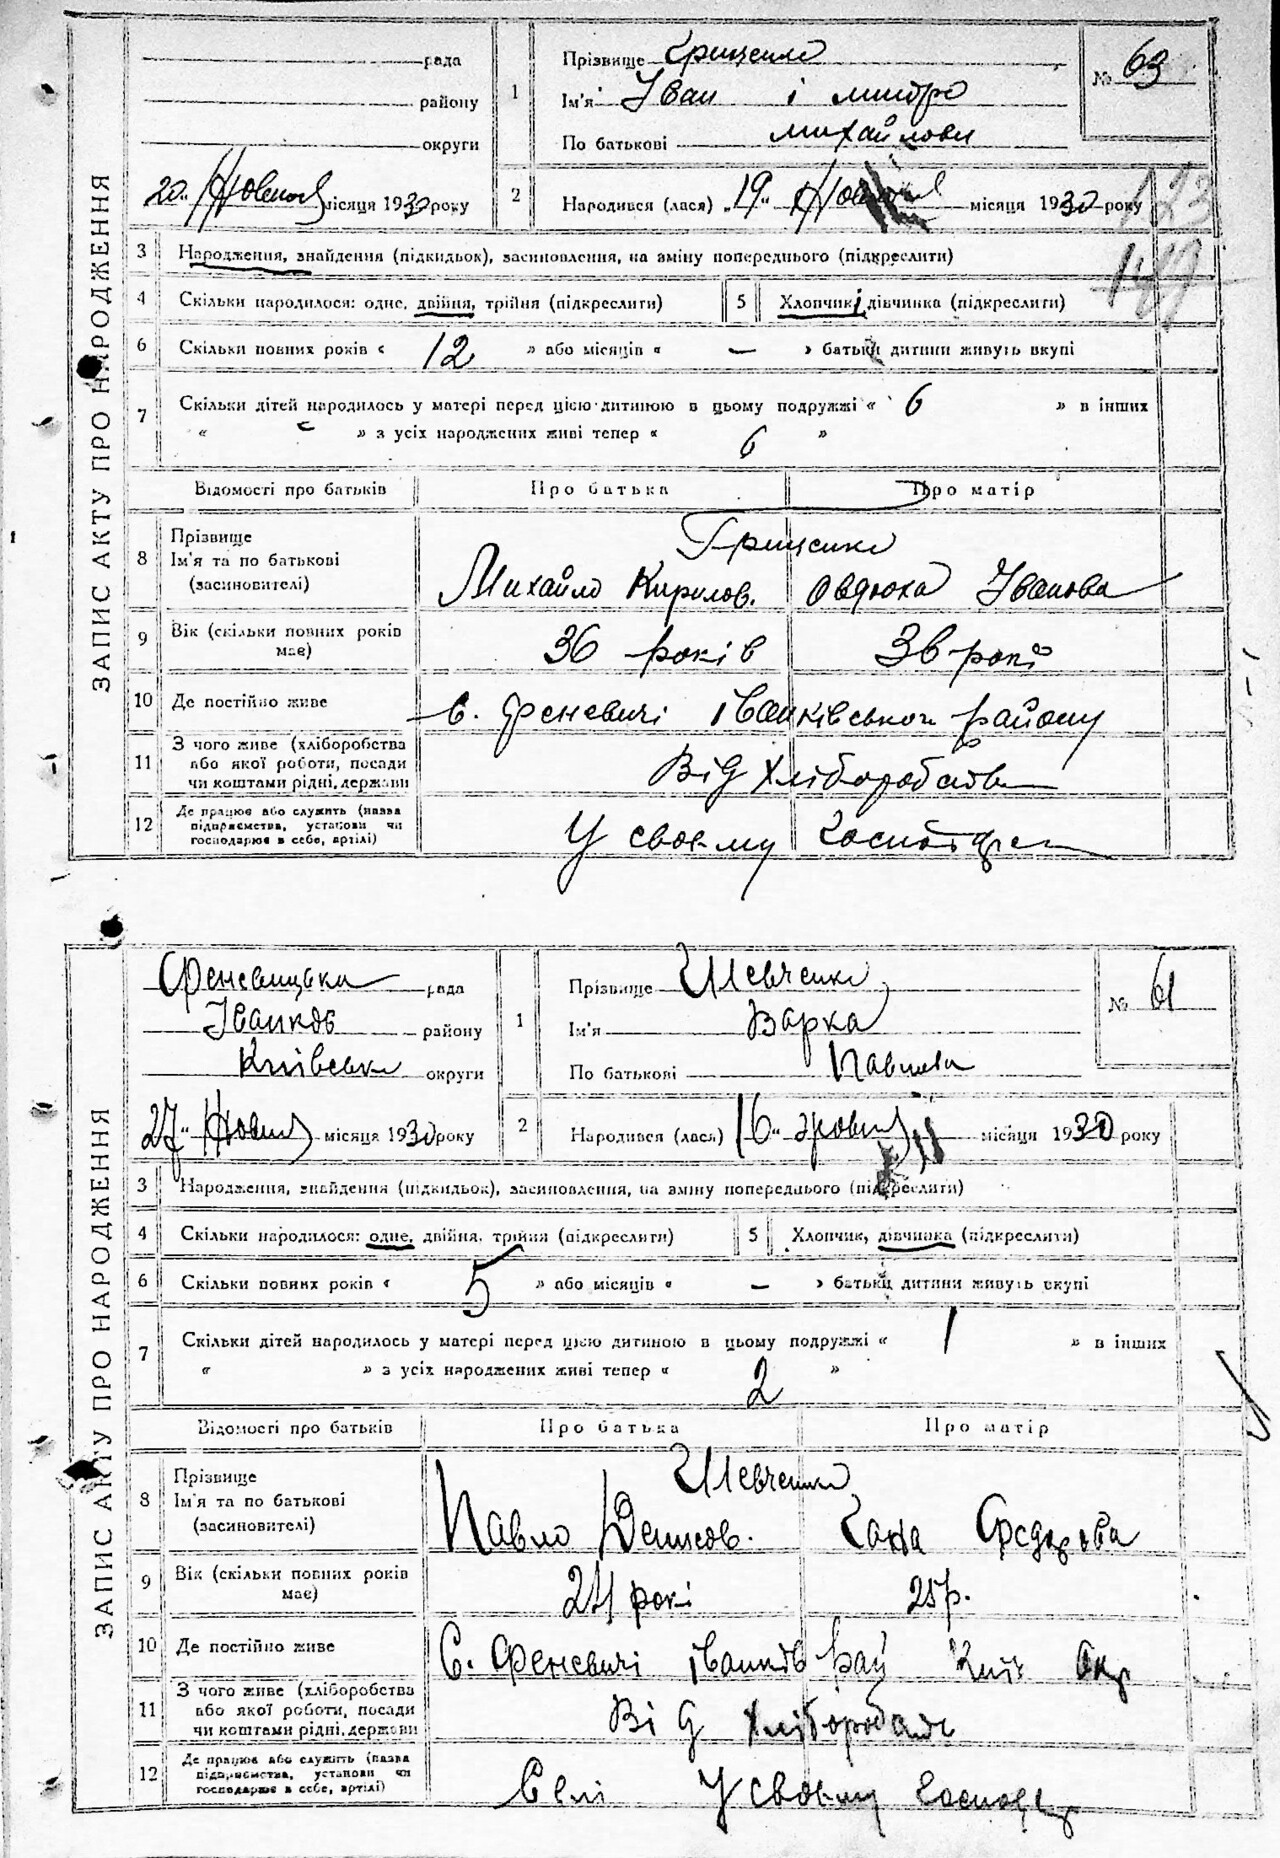 ЗАПИС АКТУ ПРО НАРОДЖЕННЯ
рада
району
округи
20 місяця 1930 року
1
Прізвище Грищенко
Ім'я Іван і
По батькові Михайлови
№ 63
2
Народився (лася) „19“ місяця 1930 року
123
3 Народження, знайдення (підкидьок), засиновлення, на зміну попереднього (підкреслити)
4 Скільки народилося: одне, двійня, трійня (підкреслити)
5 Хлопчик, дівчинка (підкреслити)
6 Скільки повних років « 12 » або місяців « — » батьки дитини живуть вкупі
7 Скільки дітей народилось у матері перед цією дитиною в цьому подружжі « 6 » в інших
« » з усіх народжених живі тепер « 6 »
Відомості про батьків Про батька Про матір
8 Прізвище Ім'я та по батькові (засиновителі)
Грищенко
Михайло Кирилов. Овдюха Іванова
9 Вік (скільки повних років має) 36 років 36 рокі
10 Де постійно живе с. Феневичі Іванківського району
11 З чого живе (хліборобства або якої роботи, посади чи коштами рідні, держави
Від Хліборобств
12 Де працює або служить (назва підприємства, установи чи господарює в себе, артілі)
У своєму
ЗАПИС АКТУ ПРО НАРОДЖЕННЯ
Феневицька рада
Іванков району
Київськ округи
27 місяця 1930 року
1
Прізвище Шевченко
Ім'я Варка
По батькові Павлова
№ 61
2
Народився (лася) „16“ місяця 1930 року
3 Народження, знайдення (підкидьок), засиновлення, на зміну попереднього (підкреслити)
4 Скільки народилося: одне, двійня, трійня (підкреслити)
5 Хлопчик, дівчинка (підкреслити)
6 Скільки повних років « 5 » або місяців « — » батьки дитини живуть вкупі
7 Скільки дітей народилось у матері перед цією дитиною в цьому подружжі « 1 » в інших
« » з усіх народжених живі тепер « 2 »
Відомості про батьків Про батька Про матір
8 Прізвище Ім'я та по батькові (засиновителі)
Шевченко
Павло Денисов. Гана Федорова
9 Вік (скільки повних років має) 24 рокі 25 р.
10 Де постійно живе С. Феневичі Іванків рай Київ Окр
11 З чого живе (хліборобства або якої роботи, посади чи коштами рідні, держави
Від Хліборобств
12 Де працює або служить (назва підприємства, установи чи господарює в себе, артілі)
У своєму господар